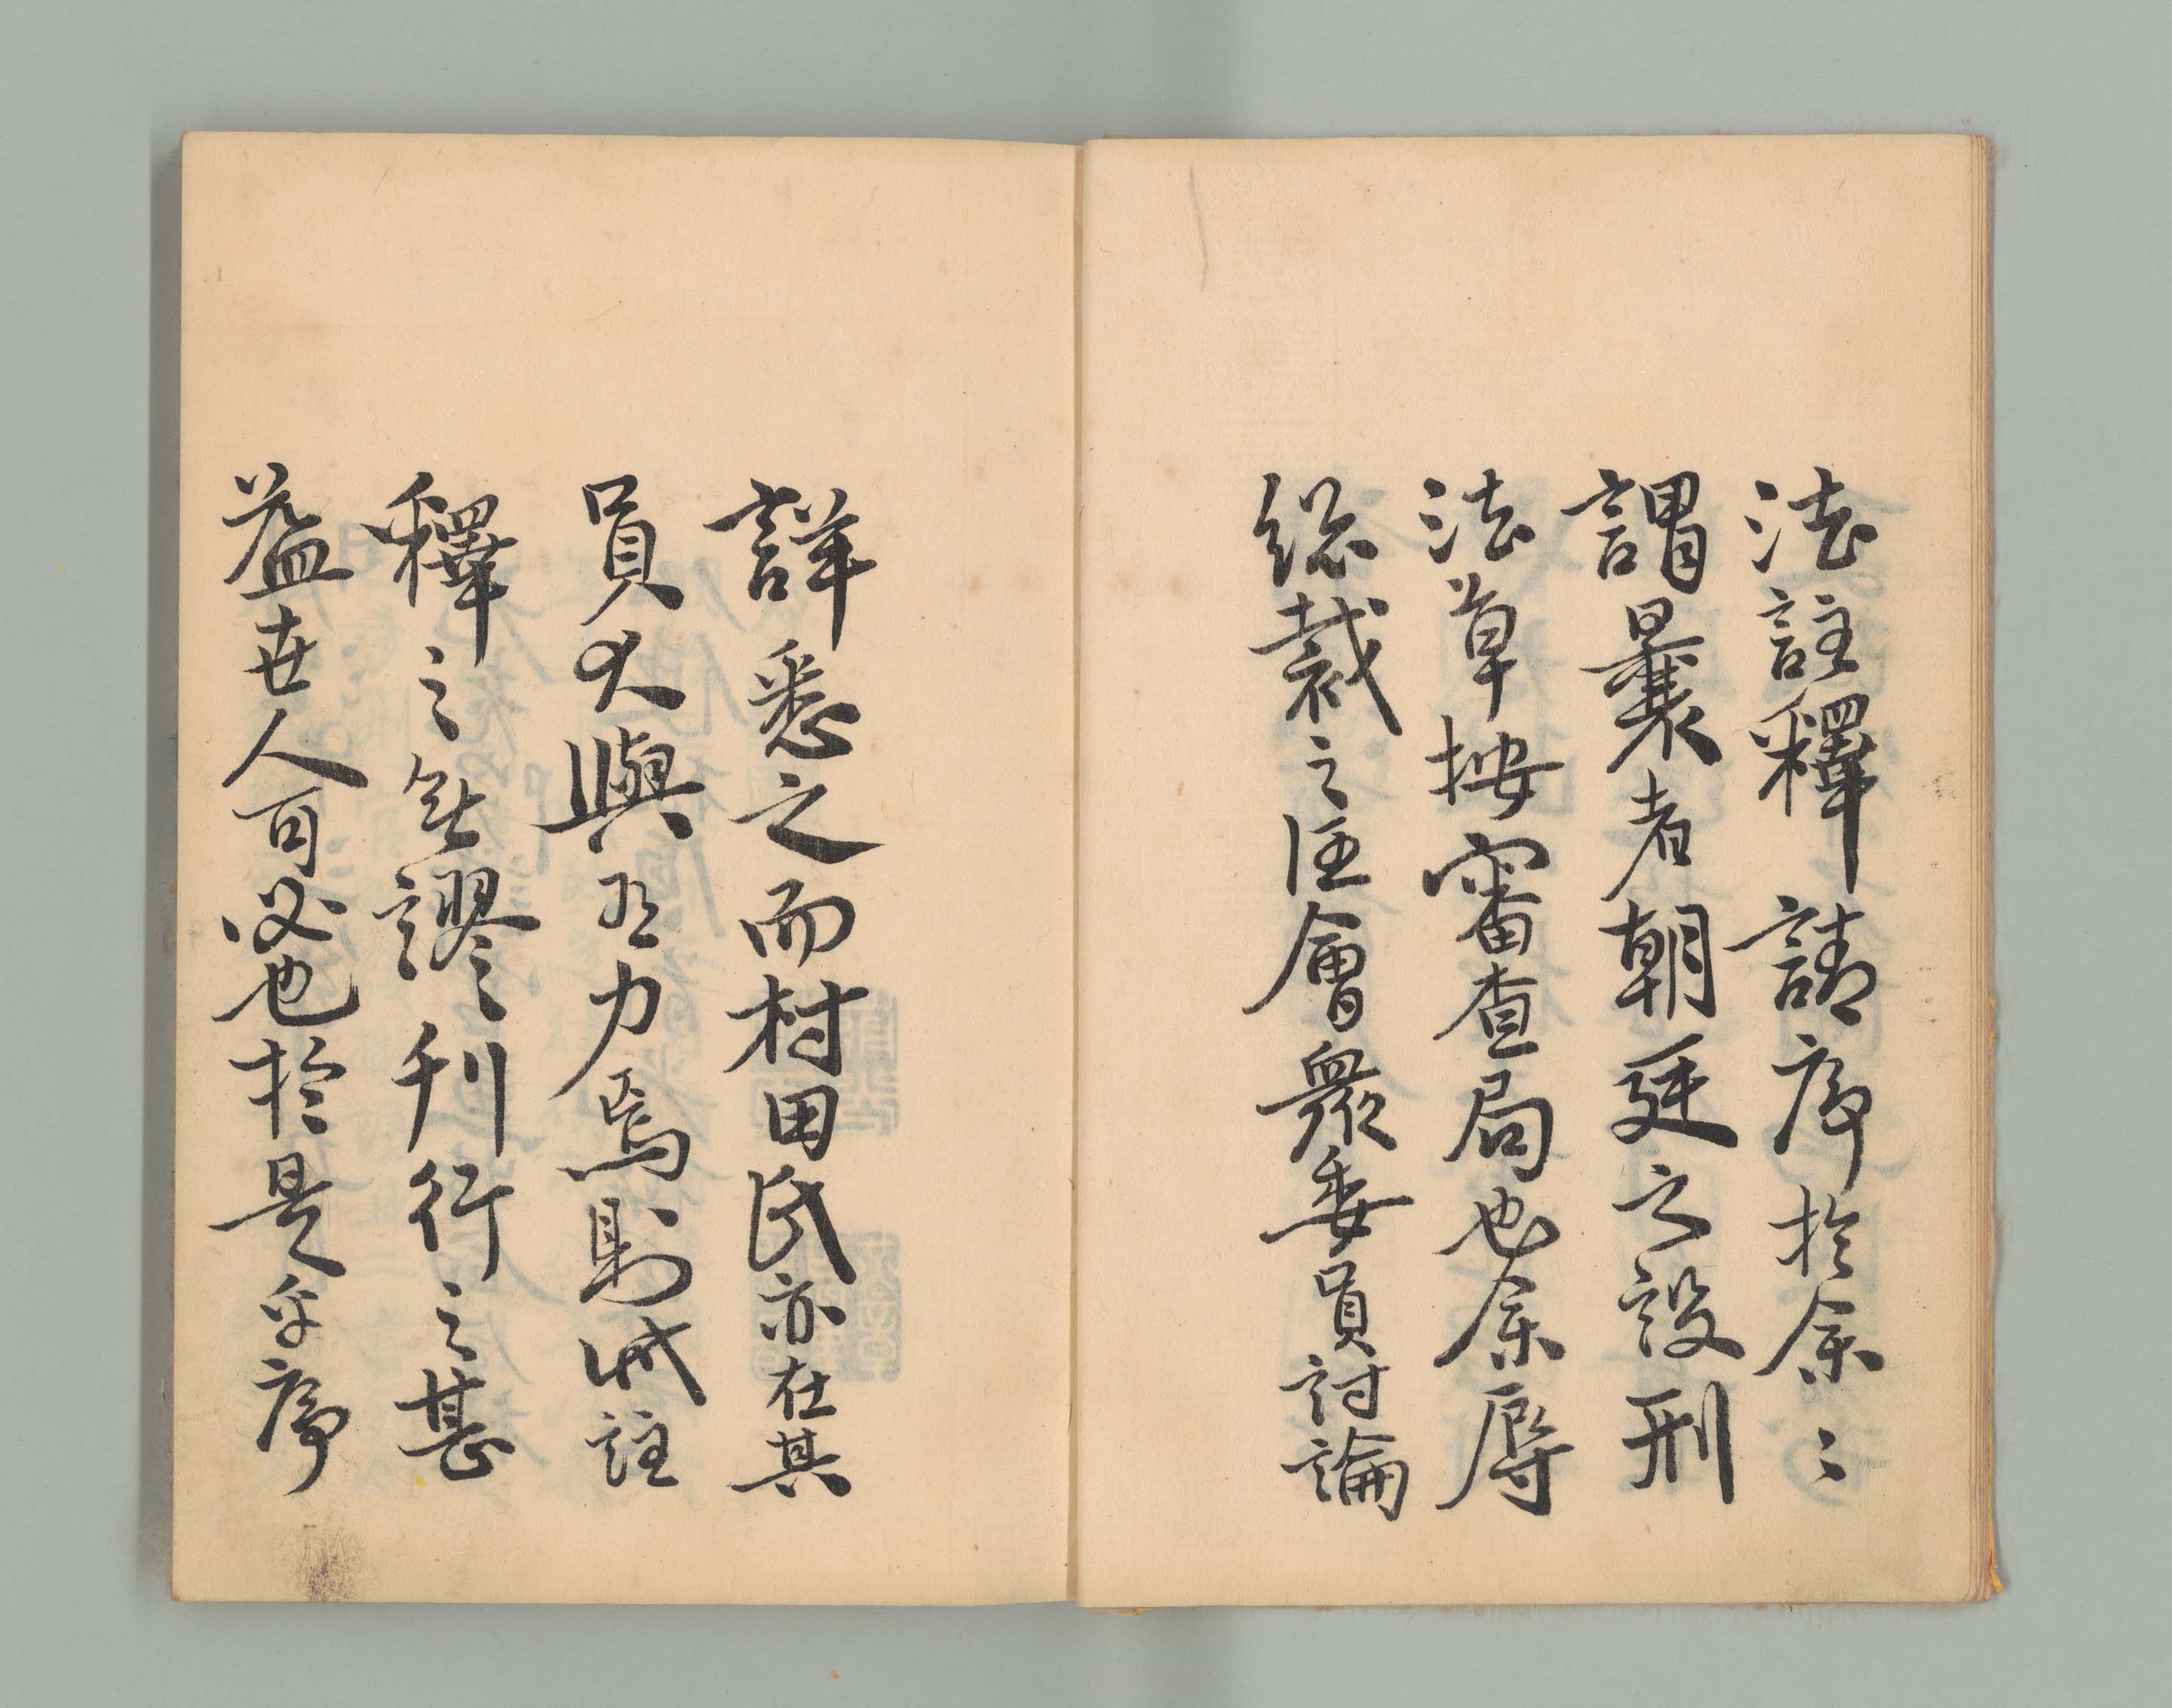 法註釋請序於余〻
謂曩者朝廷之設刑
法草按審查局也余辱
総裁之任會衆委員討論
詳悉之而村田氏亦在其
員尤與有力焉則此註
釋之無謬刊行之甚
益世人可必也於是乎序